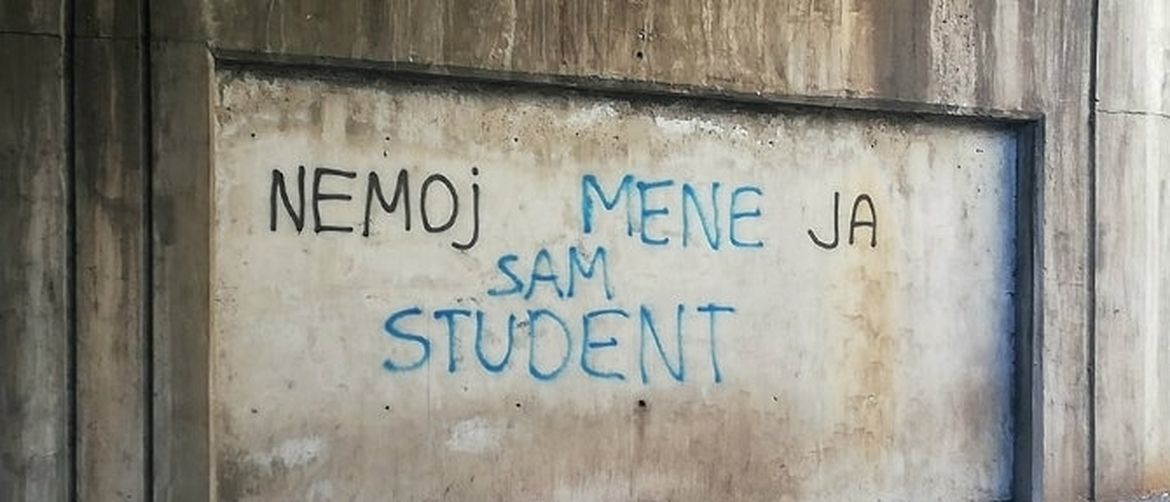 NEMOj MENE JA
SAM
STUDENT